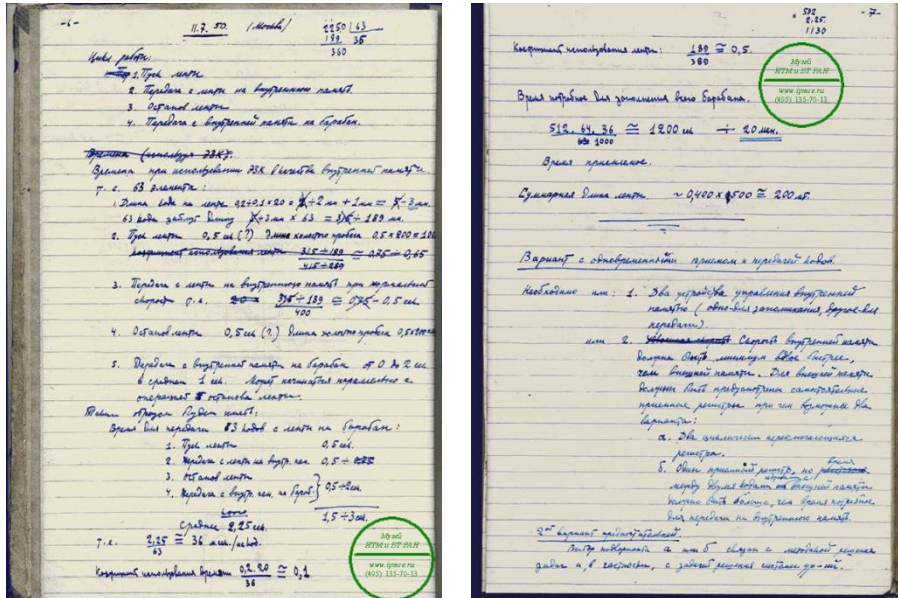 -6-
11.7.50. (Москва)
2250 | 63
189 35
360
Цикл работы:
1. Пуск ленты
2. Передача с ленты на внутреннюю память
3. Останов ленты
4. Передача с внутренней памяти на барабан.
Времена (используя ЭЗК):
Времена при использовании ЭЗК в качестве внутренней памяти.
т.е. 63 элемента:
1. Длина кода на ленте
63 кода займут длину
2. Пуск ленты 0,5 сек (?) Длина холостого пробега
коэффициент использования ленты
3. Передача с ленты на внутреннюю память при нормальной
скорости т.е.
400
4. Останов ленты 0,5 сек (?) Длина холостого пробега
5. Передача с внутренней памяти на барабан от 0 до 2 сек
в среднем 1 сек. Может начинаться параллельно с
операцией останова ленты.
Таким образом будем иметь:
Время для передачи 63 кодов с ленты на барабан:
1. Пуск ленты 0,5 сек.
2. Передача с ленты на внутр. пам. 0,5 ÷
3. Останов ленты
4. Передача с внутр. пам. на бараб. 0,5÷2сек.
1,5÷3сек.
Среднее 2,25 сек.
т.е. 2,25 ≅ 36 м сек./на код.
63
Коэффициент использования времени 0,2.20 ≅ 0,1
36
Музей
ИТМ и ВТ РАН
www.ipmce.ru
(495) 135-70-13
-7-
2.25
1130
Коэффициент использования ленты: 189 ≅ 0,5.
380
Музей
ИТМ и ВТ РАН
www.ipmce.ru
(495) 135-70-13
Время потребное для заполнения всего барабана.
512. 64. 36 ≅ 1200 сек ÷ 20 мин.
1000
Время приемлемое.
Суммарная длина ленты ~ 0,400 × 500 ≅ 200 мт.
Вариант с одновременным приемом и передачей кодов.
Необходимо или: 1. Два устройства управления внутренней
памятью (одно-для заполнения, другое-для
передачи).
или 2. Скорость внутренней памяти
должна быть минимум вдвое быстрее,
чем внешней памяти. Для внешней памяти
должны быть предусмотрены самостоятельные
приемные регистры при чем возможны два
варианта:
а. Два циклически переключающихся
регистра.
б. Один приемный регистр, но время
между двумя кодами внешней памяти
должно быть больше, чем время потребное
для передачи на внутреннюю память.
2ой вариант предпочтительней.
Выбор подварианта а или б связан с методикой решения
задач и, в частности, с задачей решения системы ур-ий.